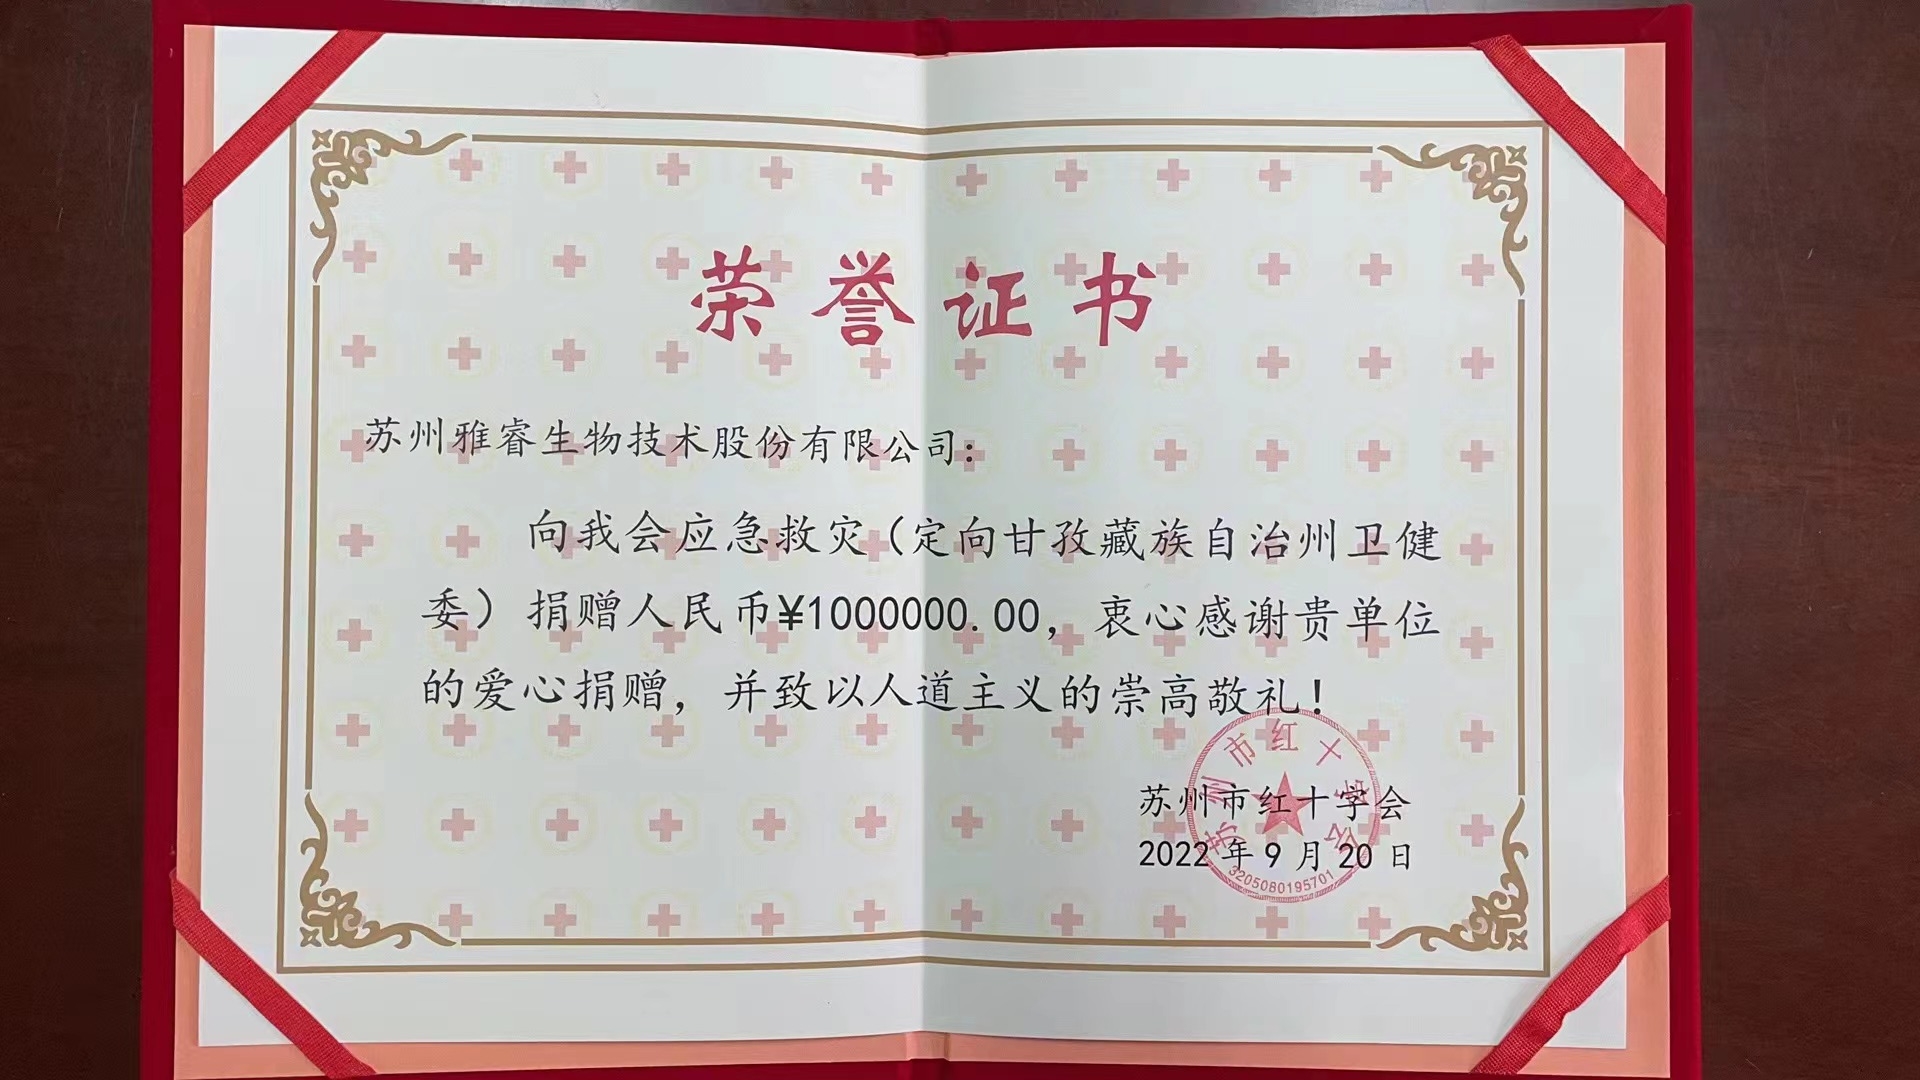 荣誉证书
苏州雅睿生物技术股份有限公司:
向我会应急救灾(定向甘孜藏族自治州卫健
委)捐赠人民币¥1000000.00,衷心感谢贵单位
的爱心捐赠,并致以人道主义的崇高敬礼!
苏州市红十字会
苏州市红十学会
2022年9月20日
3205080195701